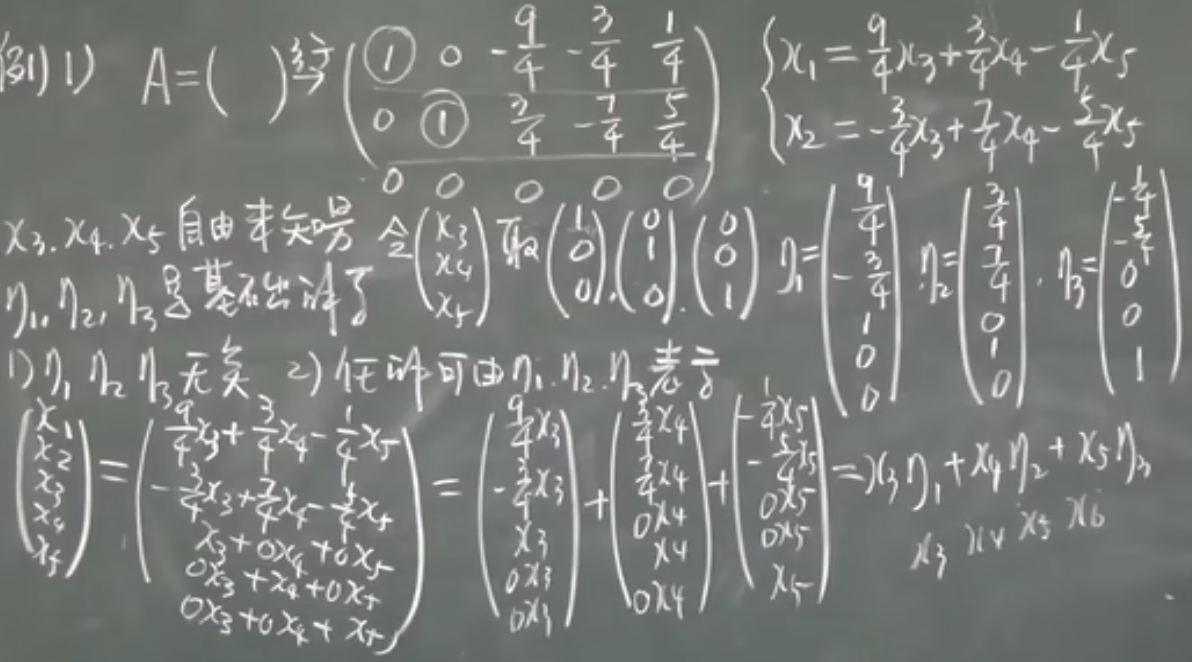 例1) 1) A=( ) 行→ (1 0 -9/4 -3/4 1/4; 0 1 3/4 -7/4 5/4; 0 0 0 0 0) { x₁ = 9/4x₃+3/4x₄-1/4x₅; x₂ = -3/4x₃+7/4x₄-5/4x₅
x₃.x₄.x₅ 自由未知量 令(x₃ x₄ x₅) 取 (1 0 0).(0 1 0).(0 0 1) η₁=(9/4 -3/4 1 0 0).η₂=(3/4 7/4 0 1 0).η₃=(-1/4 -5/4 0 0 1)
η₁,η₂,η₃是基础出解了
1) η₁ η₂ η₃ 无关 2) 任一解可由η₁.η₂.η₃表示
(x₁ x₂ x₃ x₄ x₅) = (9/4x₃+3/4x₄-1/4x₅; -3/4x₃+7/4x₄-5/4x₅; x₃+0x₄+0x₅; 0x₃+x₄+0x₅; 0x₃+0x₄+x₅) = (9/4x₃ -3/4x₃ x₃ 0x₃ 0x₃) + (3/4x₄ 7/4x₄ 0x₄ x₄ 0x₄) + (-1/4x₅ -5/4x₅ 0x₅ 0x₅ x₅) = x₃η₁+x₄η₂+x₅η₃
x₃ x₄ x₅ x₆